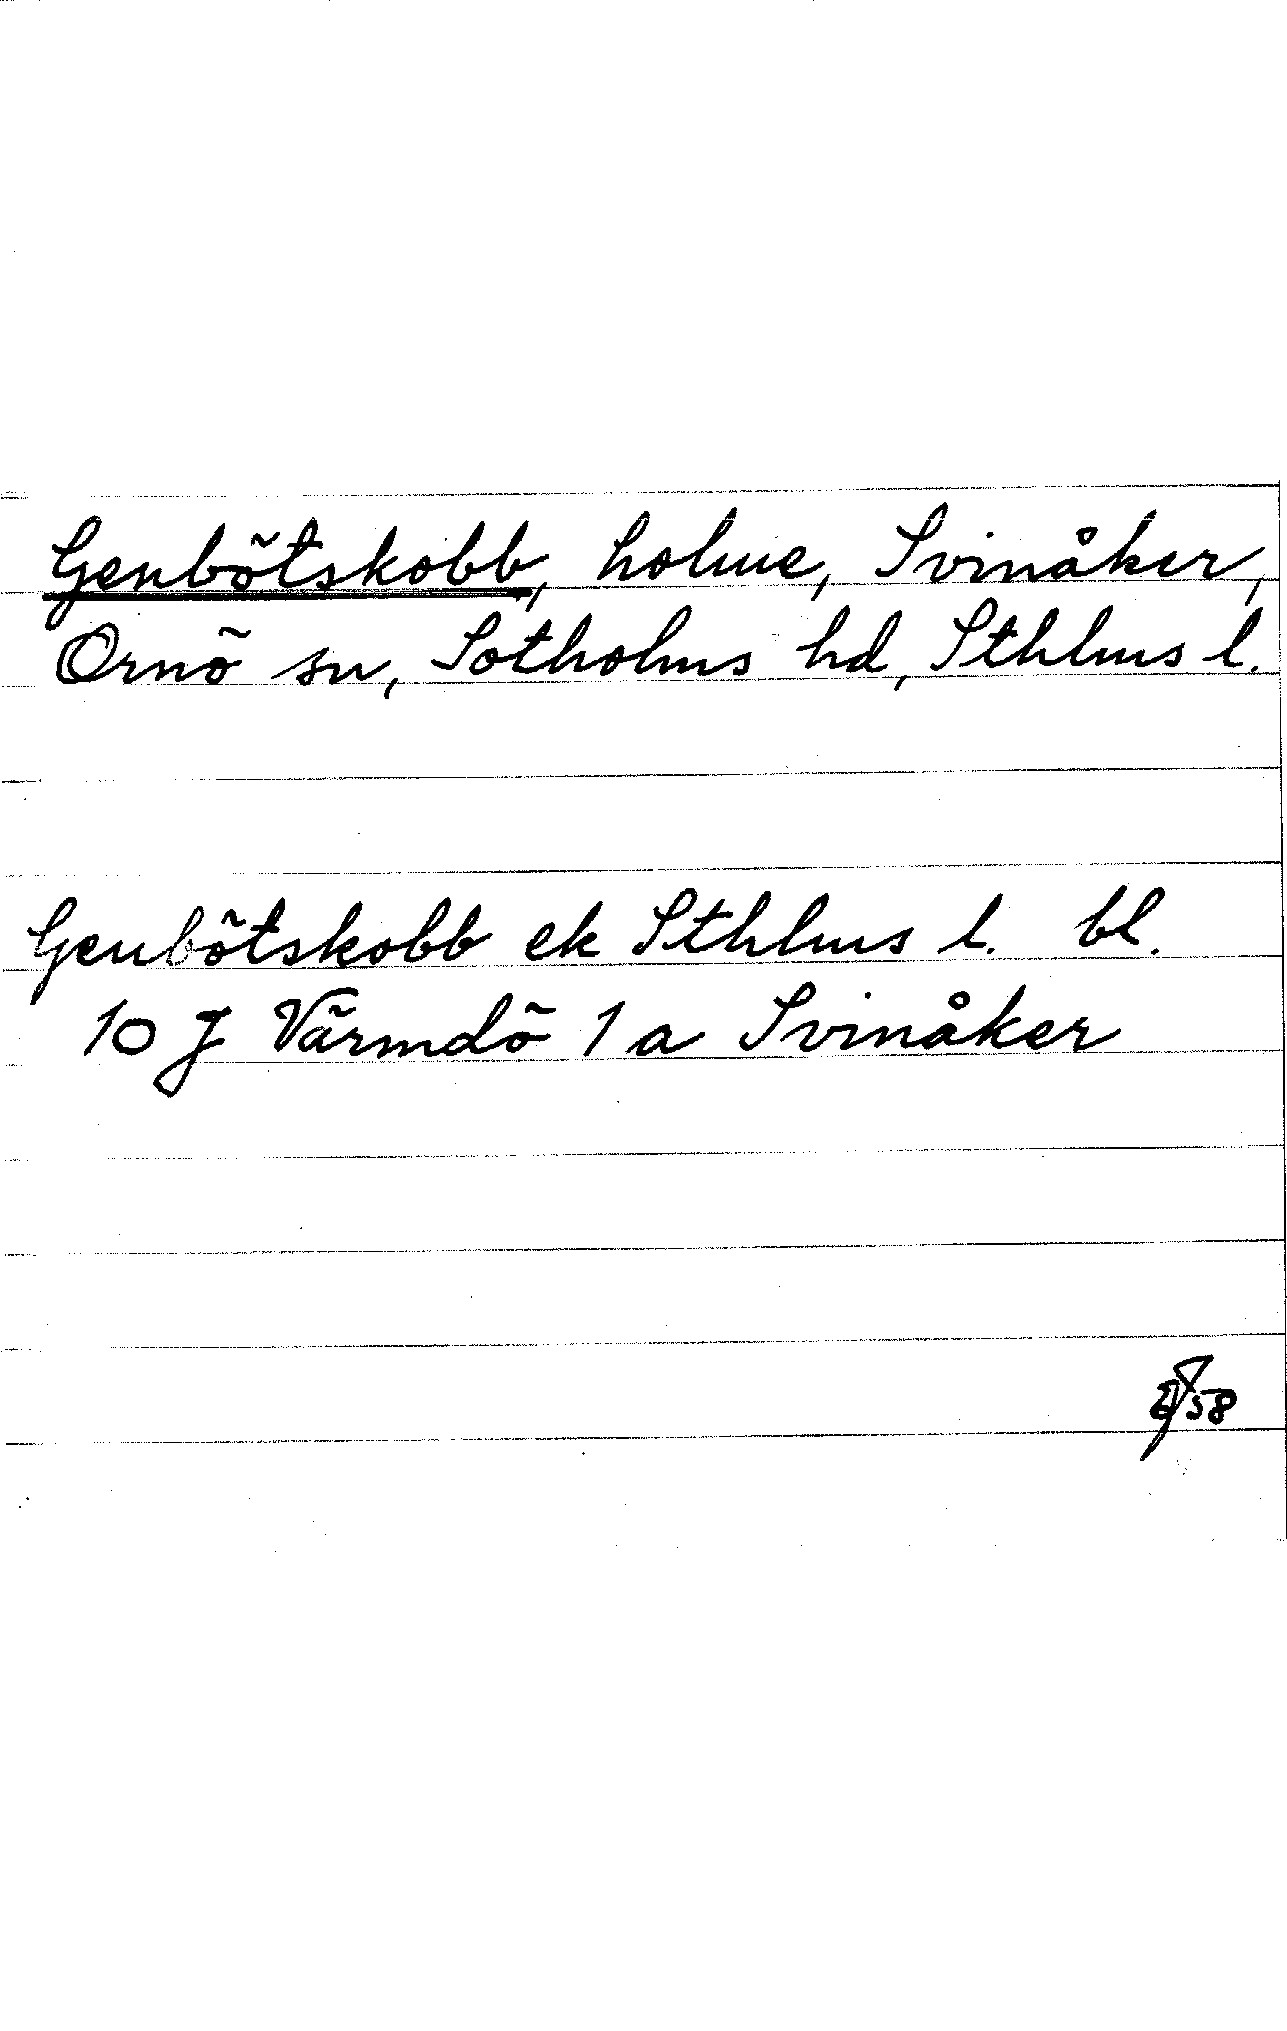 Genbötskobb, holme, Svinåker,
Ornö sn, Sotholms hd, Sthlms l.
Genbötskobb ek Sthlms l. bl.
10 J Värmdö 1 a Svinåker
58